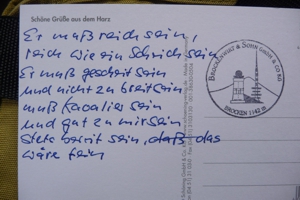 Schöne Grüße aus dem Harz
Er muß reich sein,
reich wie ein Scheich sein
Er muß gescheit sein
und nicht zu breit sein
muß Kavalier sein
und gut zu mir sein
Stets bereit sein, daß das
wäre fein
BROCKENWIRT & SOHN GmbH & CO KG
BROCKEN 1142 m